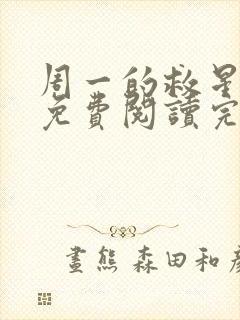 周一的救星
免費閱讀完
畫熊 森田和彥